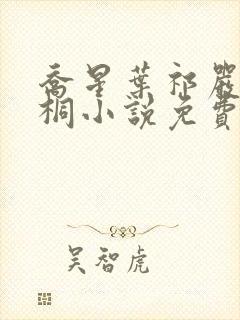 喬星葉祁嚴
桐小說免費
吴智虎